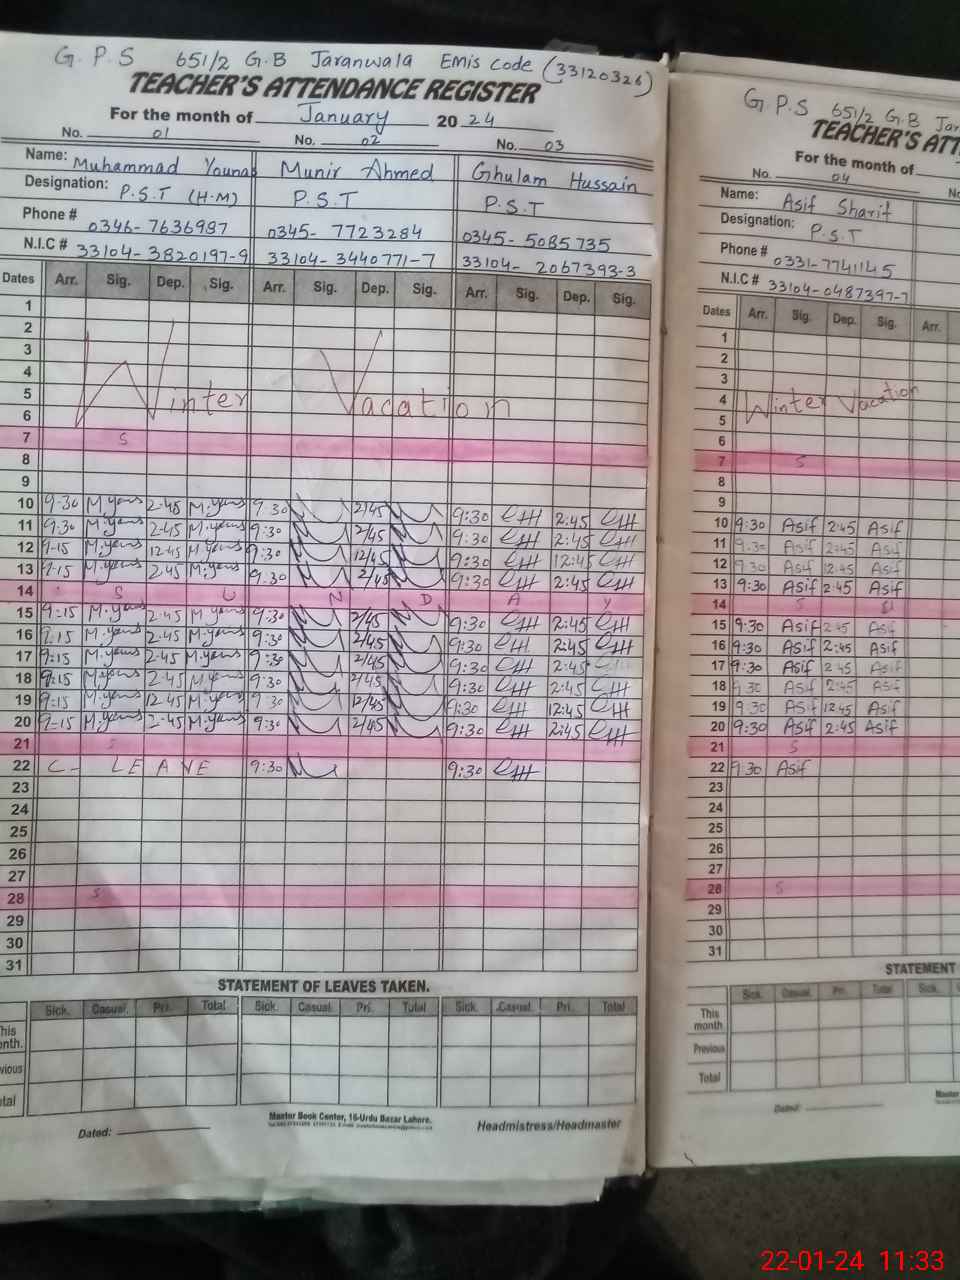 G.P.S 651/2 G.B Jaranwala Emis code (33120326)
TEACHER'S ATTENDANCE REGISTER
For the month of January 2024
No. 01 No. 02 No. 03
Name: Muhammad Younas Munir Ahmed Ghulam Hussain
Designation: P.S.T (H.M) P.S.T P.S.T
Phone # 0346-7636987 0345-7723284 0345-5085735
N.I.C # 33104-3820197-9 33104-3440771-7 33104-2067393-3
Dates Arr. Sig. Dep. Sig. Arr. Sig. Dep. Sig. Arr. Sig. Dep. Sig.
1
2
3
4
5 Winter Vacation
6
7 S
8
9
10 9:30 M.younas 2:45 M.younas 9:30 2/45 9:30 2:45
11 9:30 M.younas 2:45 M.younas 9:30 2/45 9:30 2:45
12 9:15 M.younas 12:45 M.younas 9:30 12/45 9:30 12:45
13 9:15 M.younas 2:45 M.younas 9:30 2/45 9:30 2:45
14 S U N D A Y
15 9:15 M.younas 2:45 M.younas 9:30 2/45 9:30 2:45
16 9:15 M.younas 2:45 M.younas 9:30 2/45 9:30 2:45
17 9:15 M.younas 2:45 M.younas 9:30 2/45 9:30 2:45
18 9:15 M.younas 2:45 M.younas 9:30 2/45 9:30 2:45
19 9:15 M.younas 12:45 M.younas 9:30 12/45 9:30 12:45
20 9:15 M.younas 2:45 M.younas 9:30 2/45 9:30 2:45
21 S
22 C- LEAVE 9:30 9:30
23
24
25
26
27
28 S
29
30
31
STATEMENT OF LEAVES TAKEN.
Sick. Casual. Pri. Total Sick. Casual. Pri. Total Sick. Casual. Pri. Total
This month.
Previous
Total
Dated:
Master Book Center, 16-Urdu Bazar Lahore.
Headmistress/Headmaster
G.P.S 651/2 G.B Jar
TEACHER'S ATT
For the month of
No. 04 No
Name: Asif Sharif
Designation: P.S.T
Phone # 0331-7741145
N.I.C # 33104-0487397-7
Dates Arr. Sig. Dep. Sig. Arr.
1
2
3
4 Winter Vacation
5
6
7 S
8
9
10 9:30 Asif 2:45 Asif
11 9:30 Asif 2:45 Asif
12 9:30 Asif 12:45 Asif
13 9:30 Asif 2:45 Asif
14 S
15 9:30 Asif 2:45 Asif
16 9:30 Asif 2:45 Asif
17 9:30 Asif 2:45 Asif
18 9:30 Asif 2:45 Asif
19 9:30 Asif 12:45 Asif
20 9:30 Asif 2:45 Asif
21 S
22 9:30 Asif
23
24
25
26
27
28 S
29
30
31
STATEMENT
Sick. Casual. Pri. Total Sick.
This month
Previous
Total
Dated:
Master
22-01-24 11:33